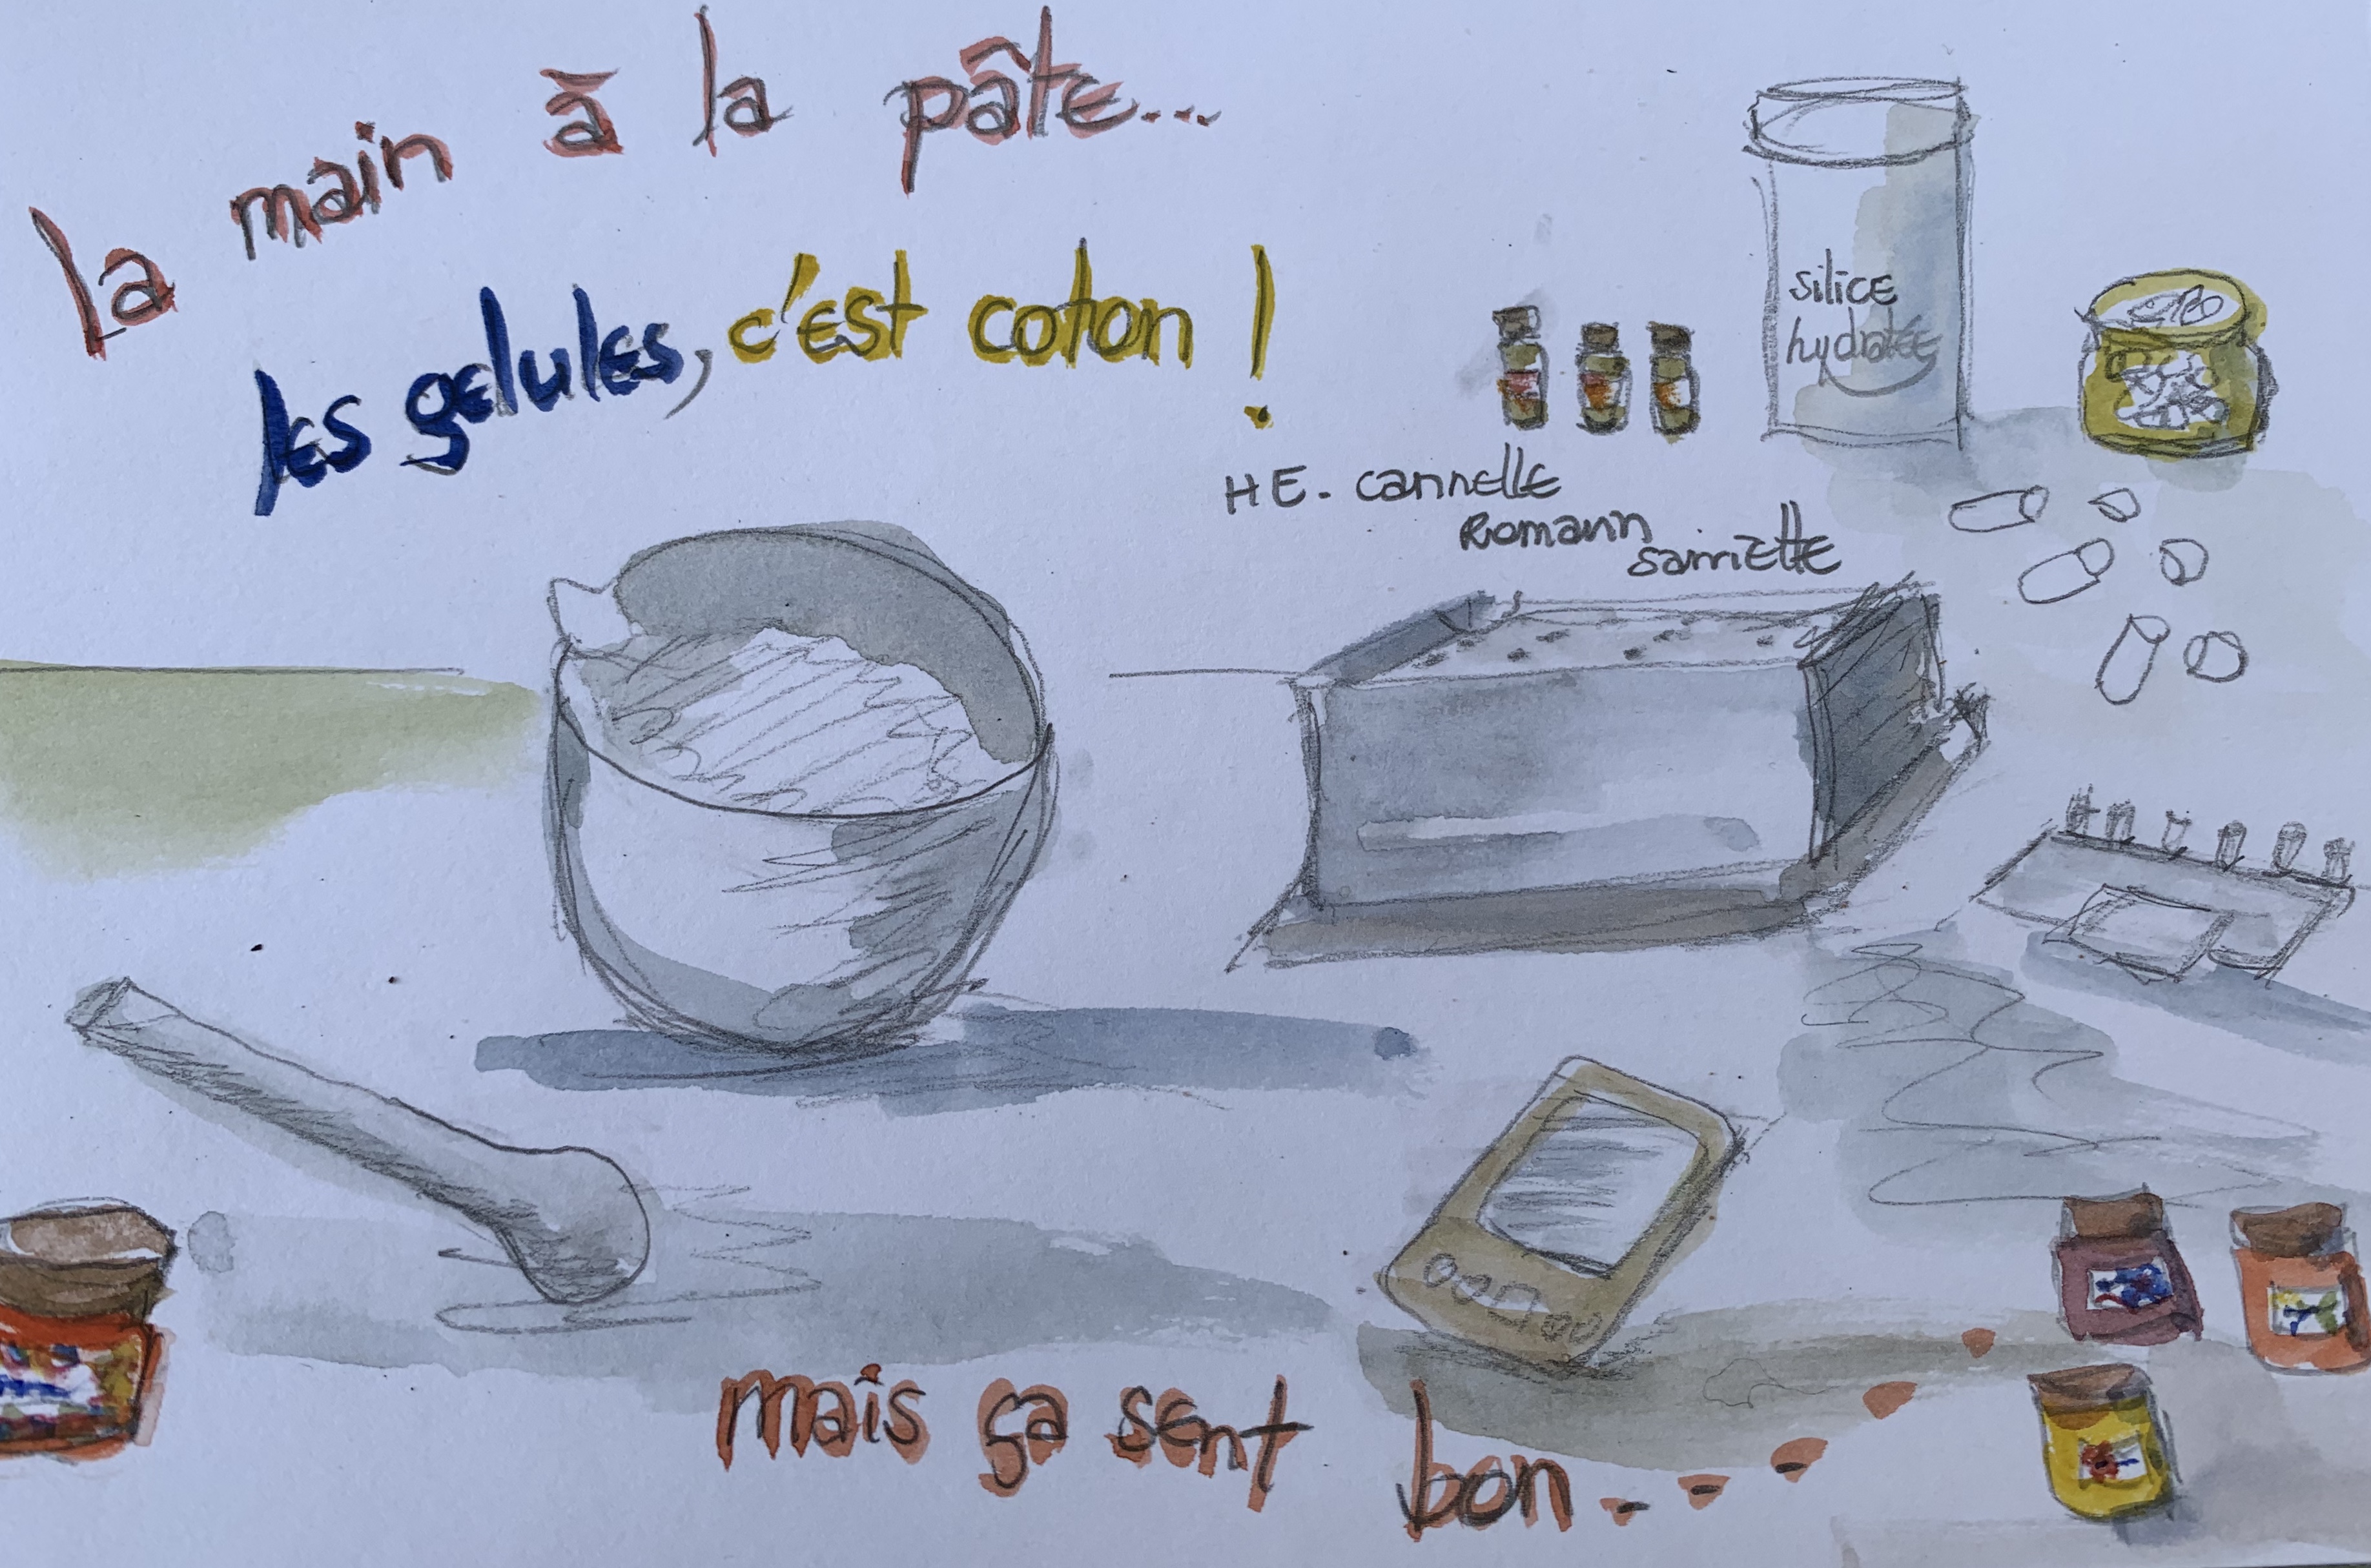 la main à la pâte...
les gelules, c'est coton !
silice
hydratée
HE. cannelle
Romarin
sarriette
mais ça sent bon...